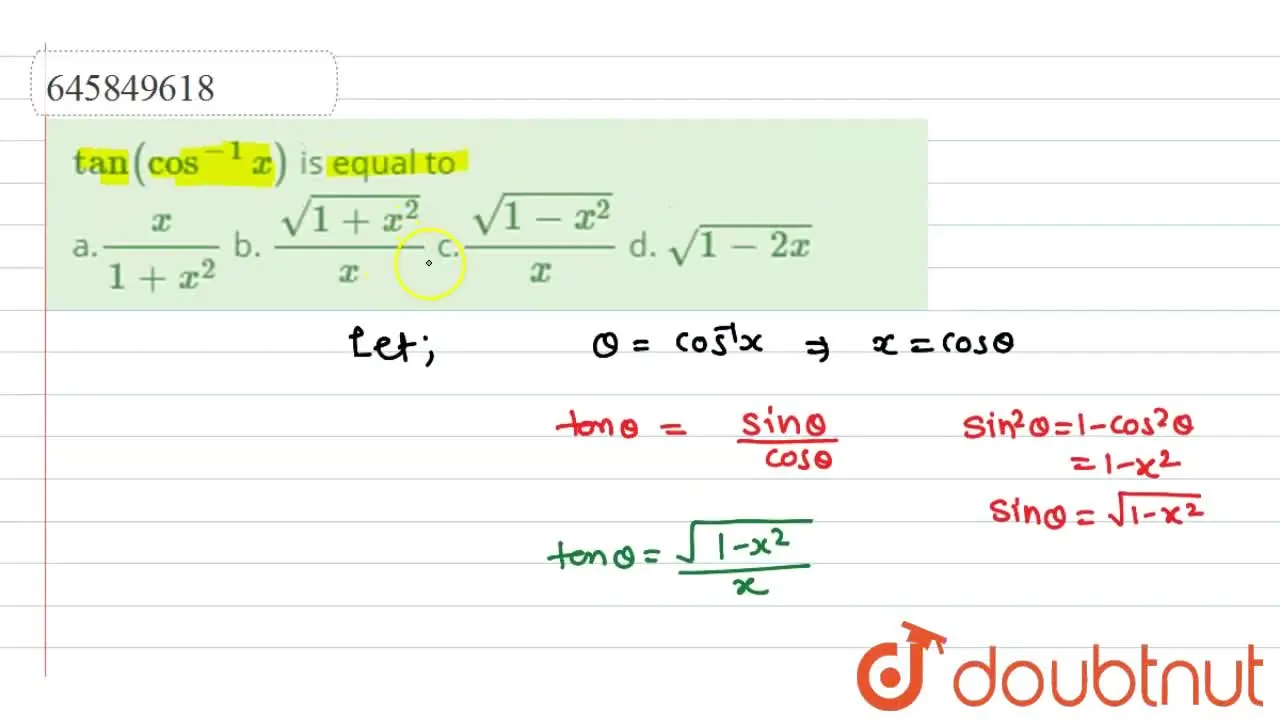 645849618
tan(cos⁻¹ x) is equal to
a. x/(1 + x²) b. √(1 + x²)/x c. √(1 − x²)/x d. √(1 − 2x)
Let; θ = cos⁻¹x ⇒ x = cosθ
tanθ = sinθ/cosθ
sin²θ = 1 − cos²θ
= 1 − x²
sinθ = √(1 − x²)
tanθ = √(1 − x²)/x
doubtnut